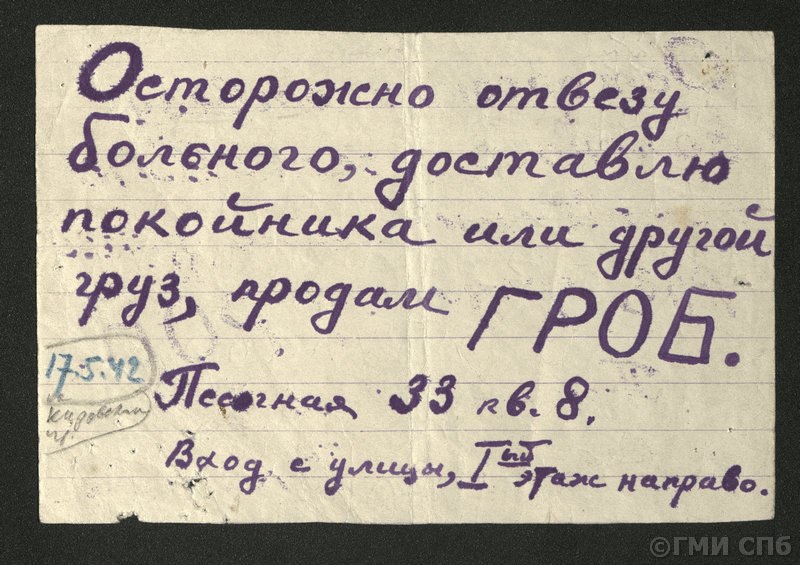 Осторожно отвезу
больного, доставлю
покойника или другой
груз, продам ГРОБ.
17.5.42
Песочная 33 кв. 8.
Вход с улицы, Iый этаж направо.
©ГМИ СПб